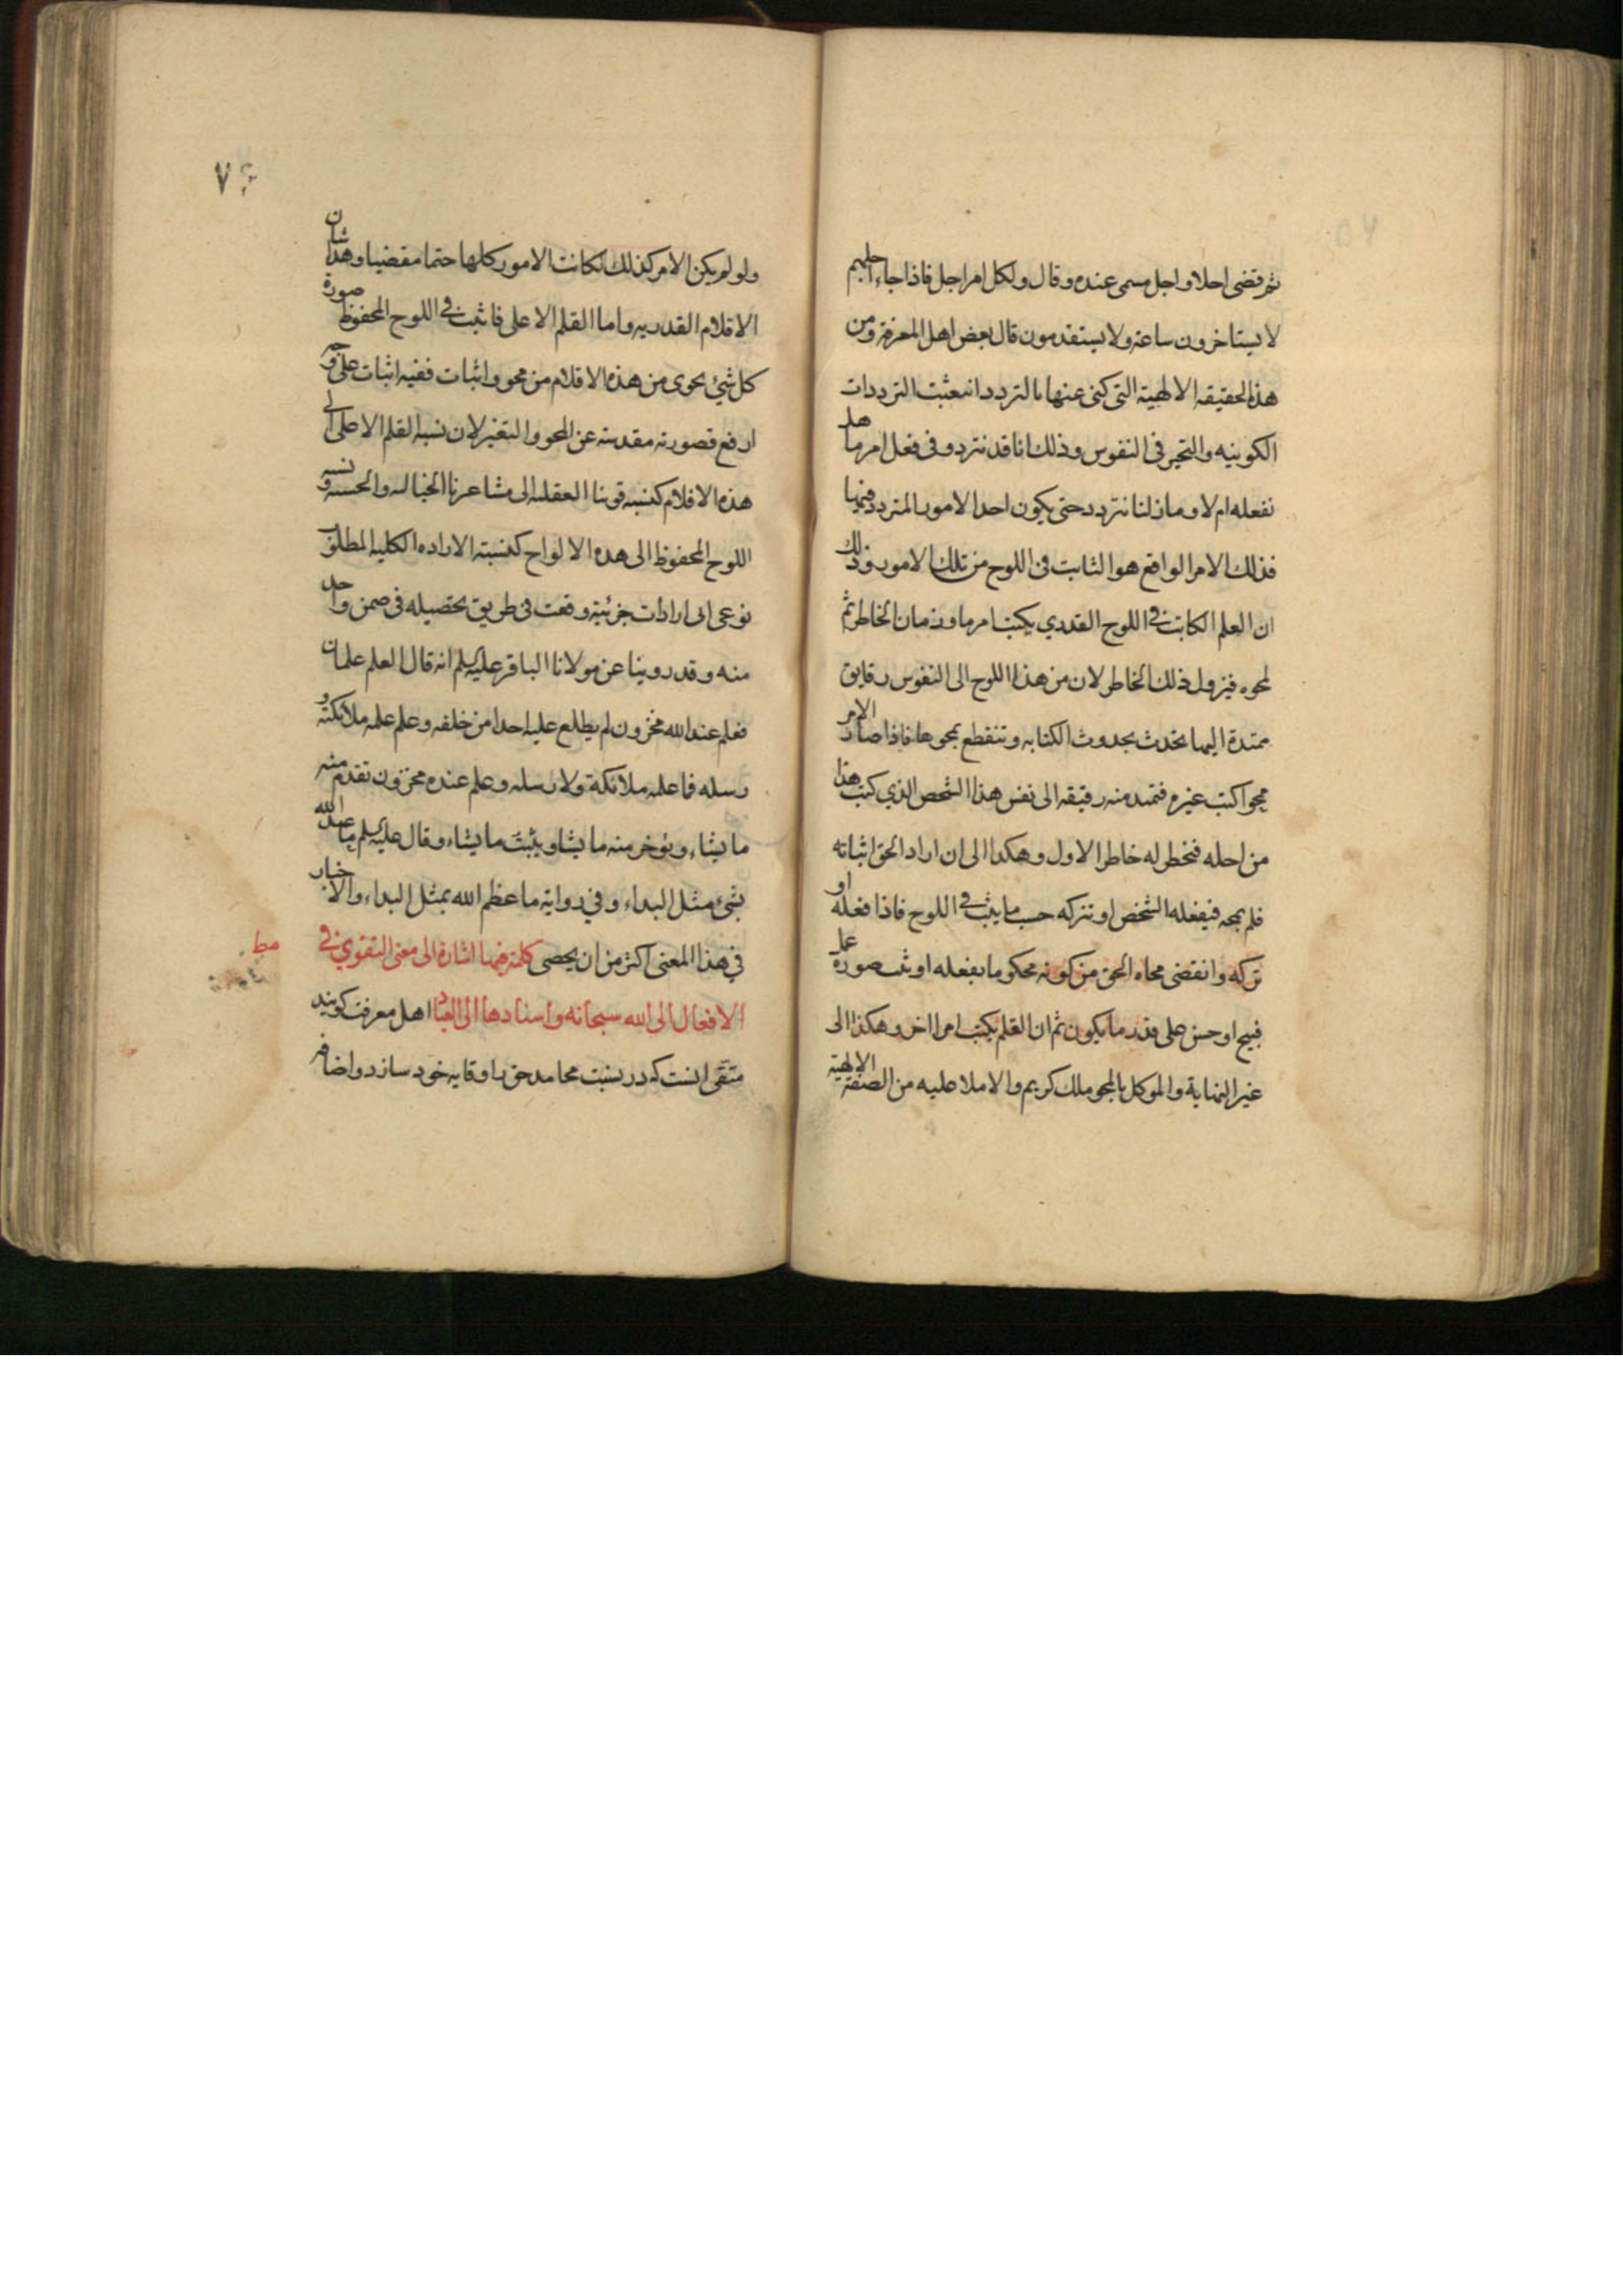 ثم قضی اجلا و اجل مسمی عنده و قال و لکل امر اجل فاذا جاء اجلهم
لا یستاخرون ساعة و لا یستقدمون قال بعض اهل المعرفة و من
هذه الحقیقه الالهیة التی کنی عنها بالتردد انبعثت الترددات
الکونیه و التحیر فی النفوس و ذلک انا قد نتردد فی فعل امر ما هل
نفعله ام لا و ما زلنا نتردد حتی یکون احد الامور المتردد فیها
فذلک الامر الواقع هو الثابت فی اللوح من تلک الامور و ذلک
ان القلم الکاتب فی اللوح القدری یکتب امرما و زمان الخاطر ثم
یمحوه فیزول ذلک الخاطر لان من هذا اللوح الی النفوس رقایق
ممتدة الیها تحدث بحدوث الکتابه و تنقطع بمحوها فاذا صار الامر
ممحوا کتب غیره فتمتد منه رقیقه الی نفس هذا الشخص الذی کتب هذا
من اجله فیخطر له خاطر الاول و هکذا الی ان اراد الحق اثباته
فلم یمحه فیفعله الشخص او یترکه حسب ما یثبت فی اللوح فاذا فعله او
ترکه و انقضی محاه الحق من کونه محکوما بفعله او ثبت صورة عمل
قبیح او حسن علی قدر ما یکون ثم ان القلم یکتب امرا اخر و هکذا الی
غیر النهایة و الموکل بالمحو ملک کریم و الاملا علیه من الصفة الالهیة
۷۶
و لو لم یکن الامر کذلک لکانت الامور کلها حتما مقضیا و هذا شان
الاقلام القدریه و اما القلم الاعلی فاثبت فی اللوح المحفوظ صورة
کل شیٔ یجری من هذه الاقلام من محو و اثبات ففیه اثبات علی وجه
ارفع فصورته مقدسة عن المحو و التغیر لان نسبة القلم الاعلی الی
هذه الاقلام کنسبه قوتنا العقلیه الی مشاعرنا الخیالیه و الحسیه و نسبه
اللوح المحفوظ الی هذه الالواح کنسبة الاراده الکلیه المطلوب
نوعی الی ارادات جزئیة وقعت فی طریق تحصیله فی ضمن واحد
منه و قد روینا عن مولانا الباقر علیه السلم انه قال العلم علمان
فعلم عند الله مخزون لم یطلع علیه احدا من خلقه و علم علمه ملائکته و
رسله فما علمه ملائکة و لا رسله و علم عنده مخزون تقدم منه
ما یشاء و یوخر منه ما یشا و یثبت ما یشاء و قال علیه السلم ما عبد الله
بشیٔ مثل البداء و فی روایة ما عظم الله بمثل البداء و الاخبار
فی هذا المعنی اکثر من ان یحصی کلمة فیها اشارة الی معنی التقوی فی
الافعال الی الله سبحانه و اسنادها الی العباد اهل معرفت کویند
متقی آنست که در نسبت محامد حق را وقایه خود سازد و اضافه
مط